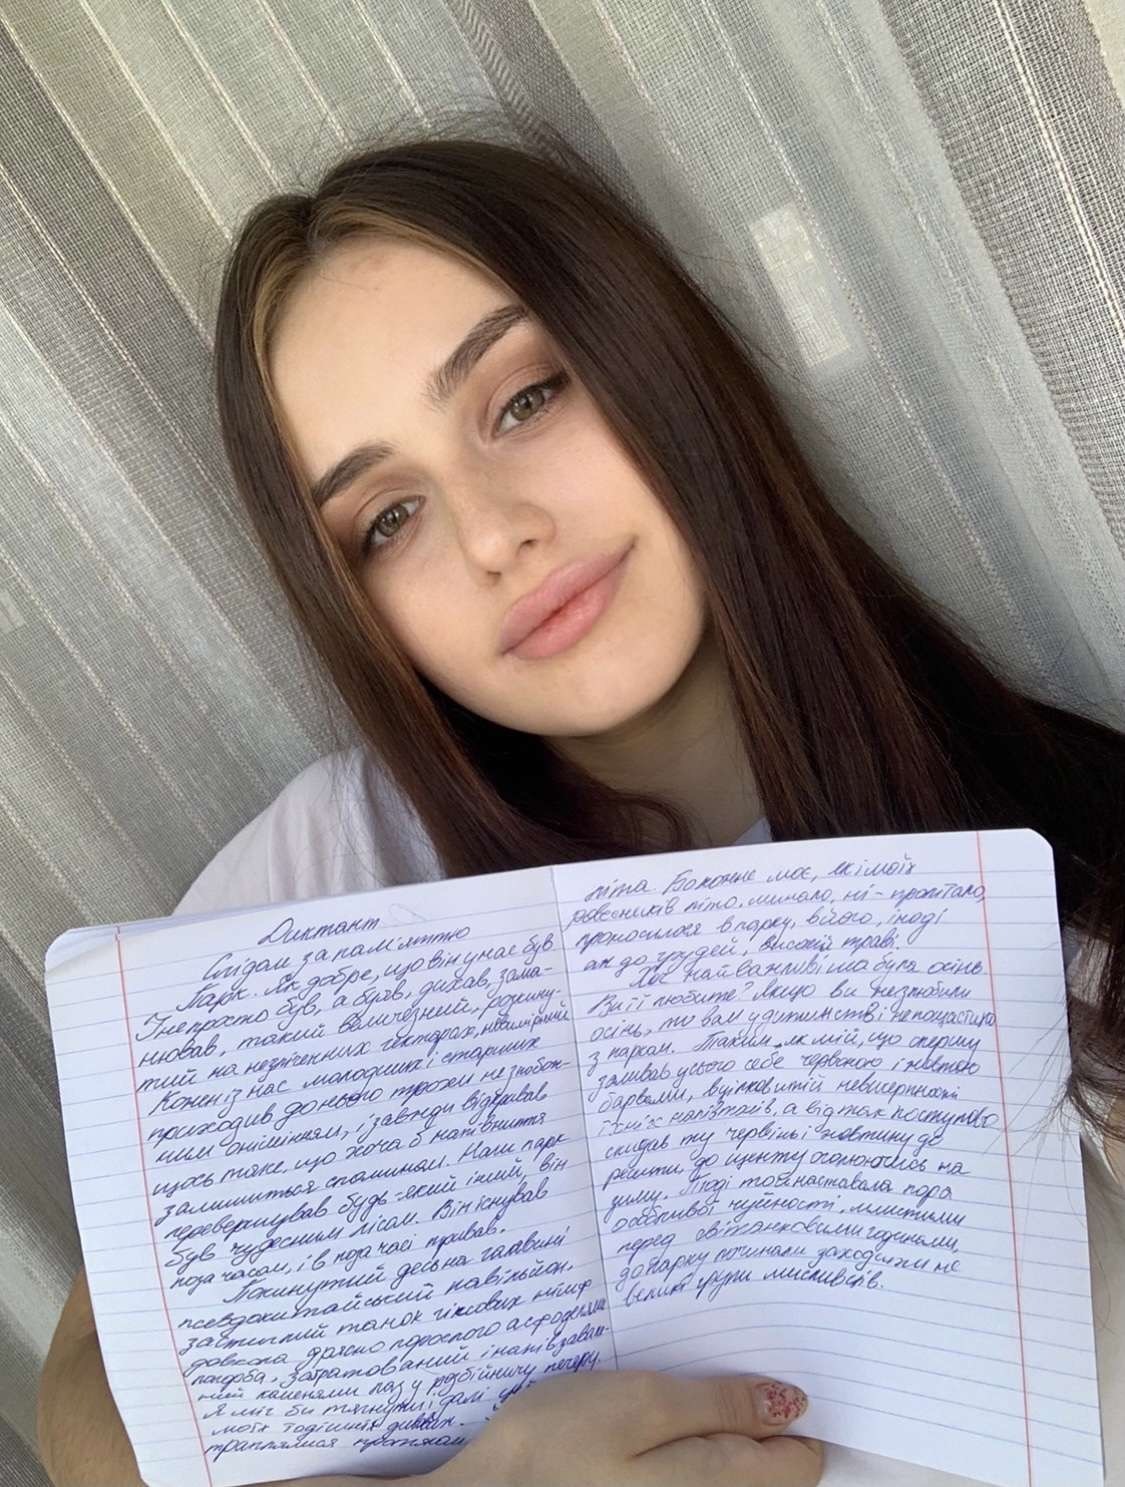 Диктант
Слідам за пам'яттю
Парк. Як добре, що він у нас був
І не просто був, а бував, дихав, зама-
нював, такий величезний, розкину-
тий на незліченних гектарах, невимірний
Кожен із нас молодших і старших
приходив до нього трохи не з побож-
ним онімінням, і завжди відкривав
щось таке, що хоча б напівжиття
залишиться спомином. Наш парк
перевершував будь-який інший, він
був чудесним лісом. Він існував
поза часом, і в позачасі тривав.
Покинутий десь на галявині
псевдокитайський павільйон,
застиглий танок гіпсових німф
довкола рясно порослого асфоделями
горба, загратований і напівзавале-
ний каменями лаз у розбійничу печеру.
Я міг би тягнути і далі цей
моїх тодішніх дивних.
траплялися протягом
літа. Бо кожне моє, як і моїх
ровесників літо, минало, ні - пролітало,
проносилося в парку, в його, іноді
аж до грудей, високій траві.
Хоч найважливіша була осінь.
Ви її любите? Якщо ви не злюбили
осінь, то вам у дитинстві не пощастило
з парком. Таким, як мій, що спершу
заливав усього себе червоною і жовтою
барвами, в цілковитій невичерпності
їхніх напівтонів, а відтак поступово
скидав ту червінь і жовтину до
решти, до щенту оголюючись на
зиму. Тоді то й наставала пора
особливої чуйності, імлистими
перед світанковими годинами,
до парку починали заходити не
великі групи мисливців.